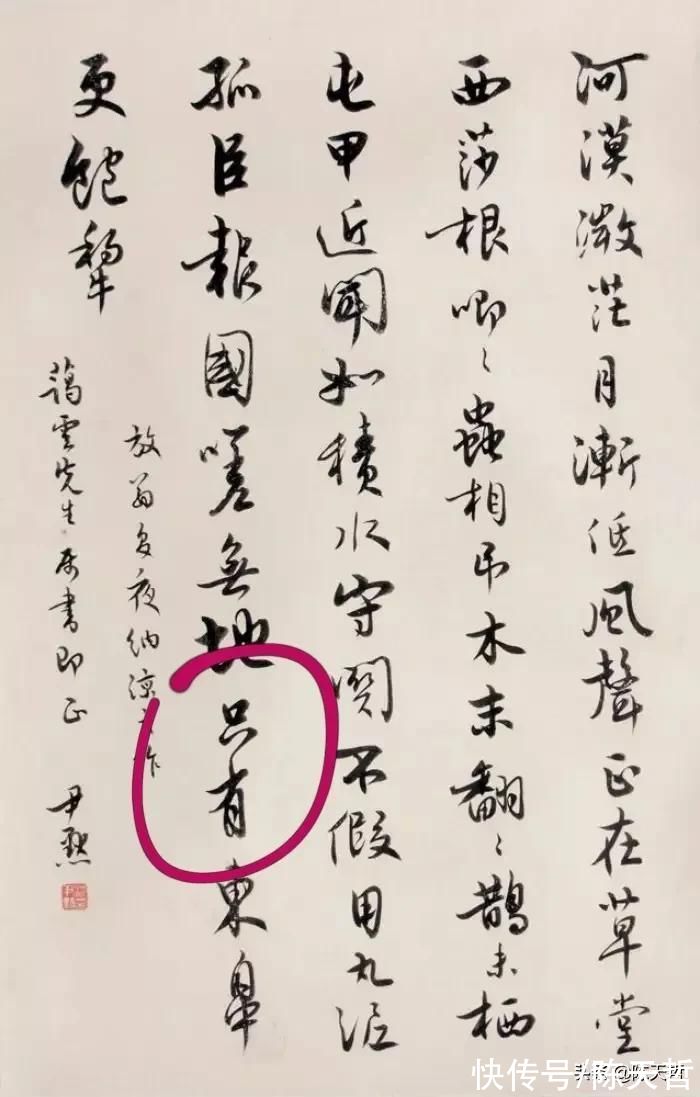 河漢微茫月漸低風聲正在草堂
西莎根唧〻蟲相弔木末翻〻鵲未栖
屯甲近聞如積水守關不假用丸泥
孤臣報國嗟無地只有東皋
更飽犂
放翁夏夜納涼之作
藹雲先生屬書即正 尹默
快传号/陈天哲
头条 @陈天哲